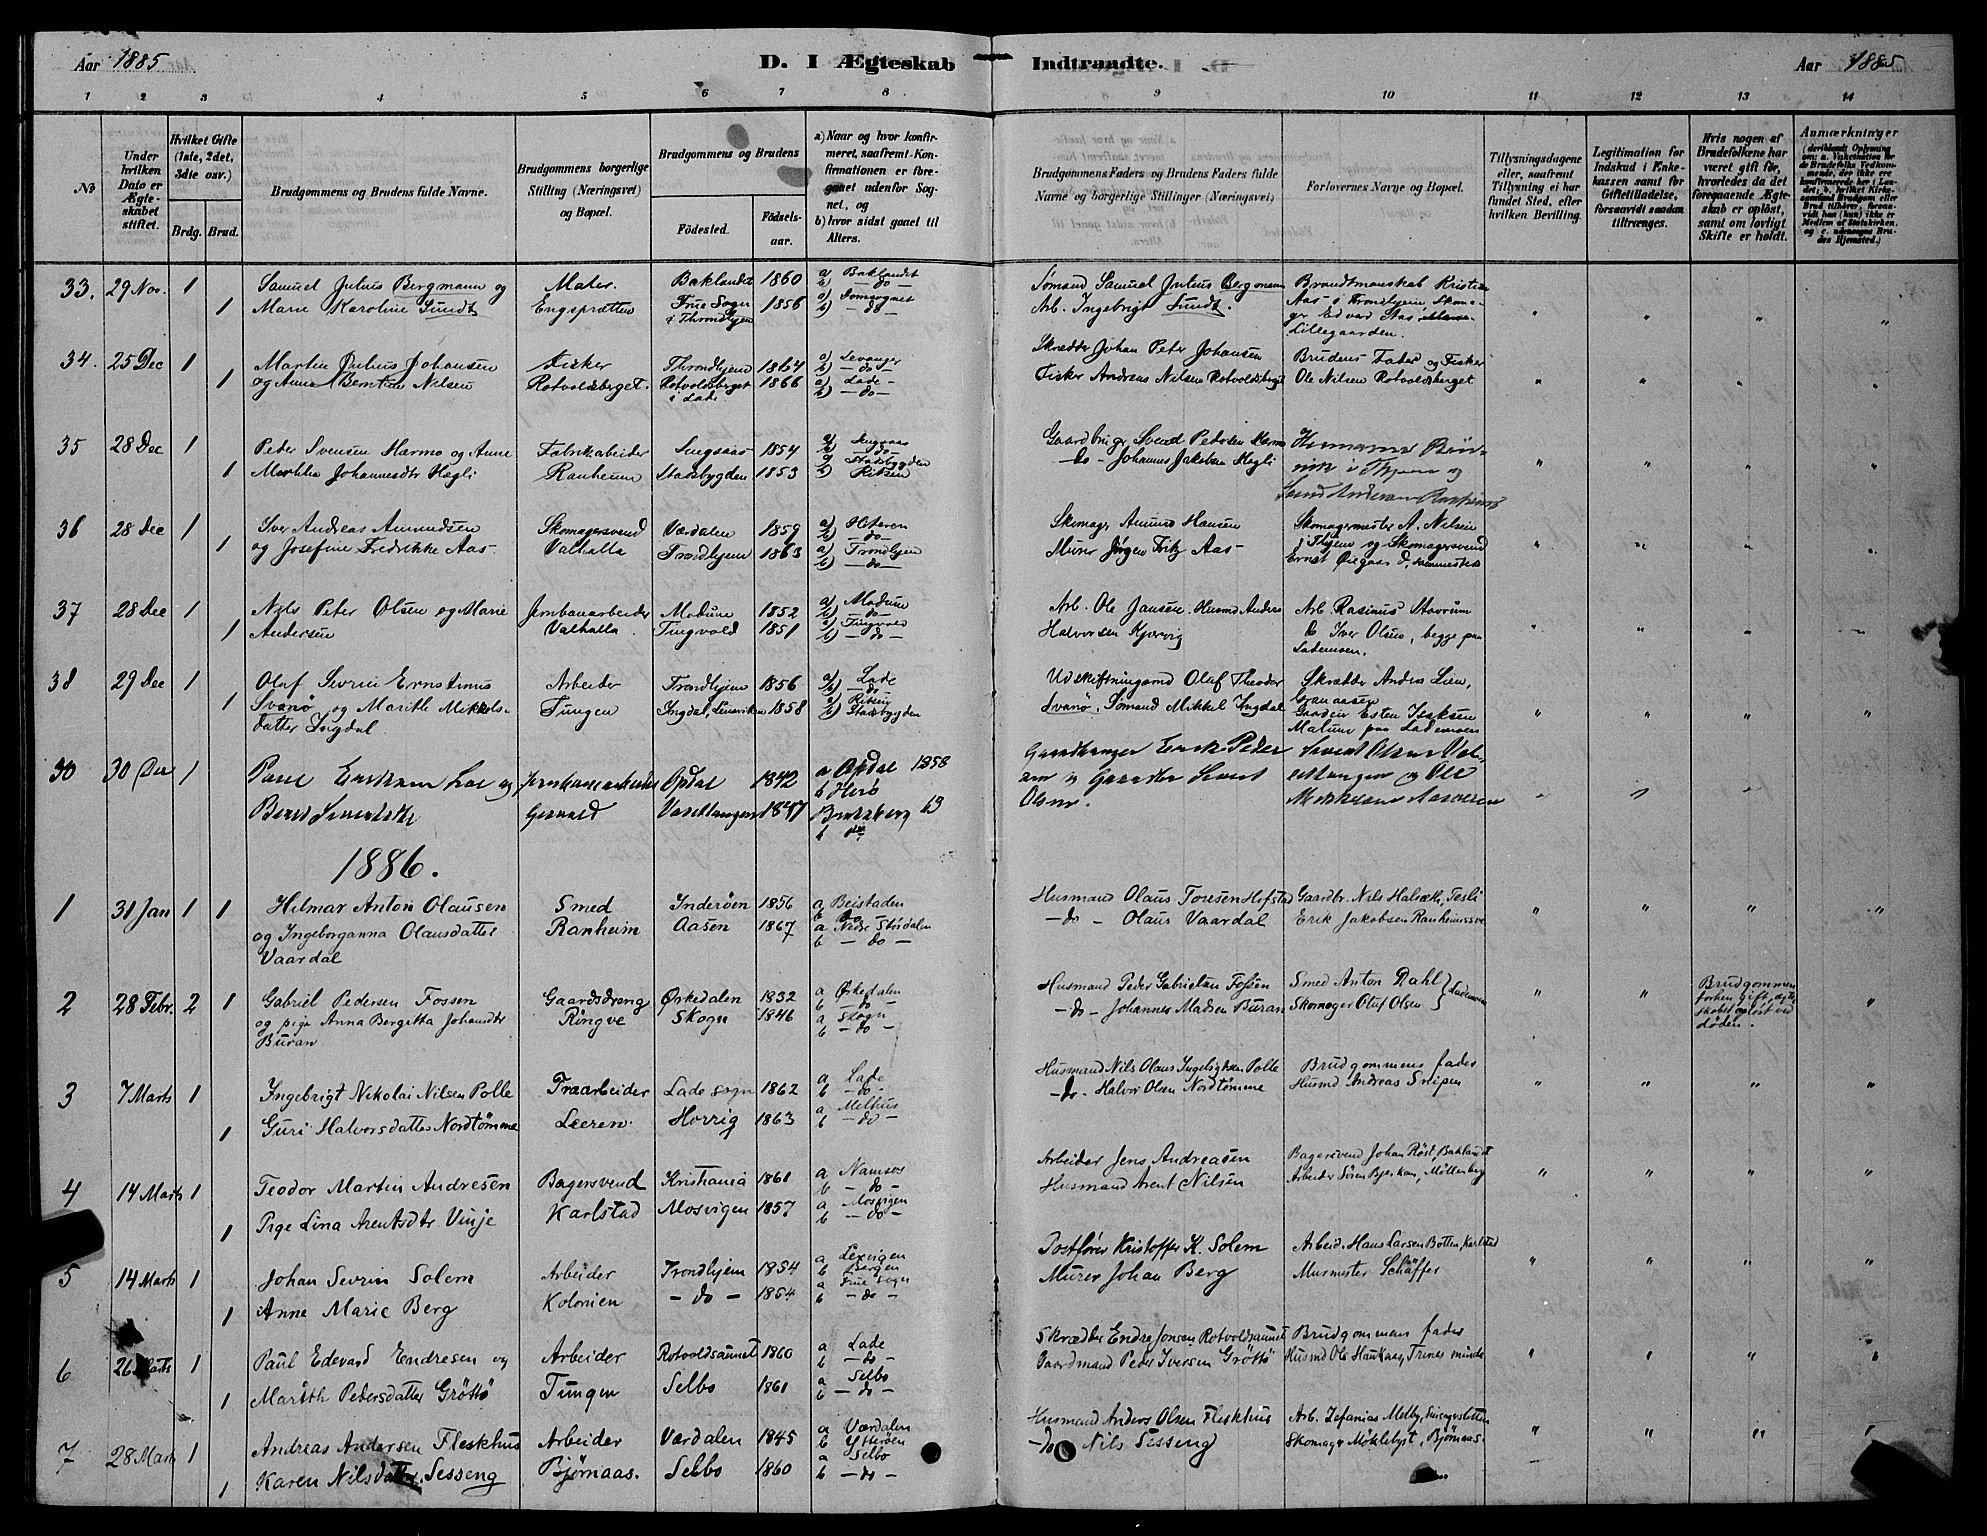 Aar 1885 D. I Ægteskab Indtraadte. Aar 1885
1 2 3 4 5 6 7 8 9 10 11 12 13 14
No
Under hvilken Dato er Ægteskabet stiftet.
Hvilket Gifte (1ste, 2det, 3die osv.)
Brdg. Brud.
Brudgommens og Brudens fulde Navne.
Brudgommens borgerlige Stilling (Næringsvei) og Bopæl.
Brudgommens og Brudens
Fødested. Fødselsaar.
a) Naar og hvor konfirmeret, saafremt Konfirmationen er foregaaet udenfor Sognet, og
b) hvor sidst gaaet til Alters.
Brudgommens Faders og Brudens Faders fulde Navne og borgerlige Stillinger (Næringsvei)
Forlovernes Navne og Bopæl.
Tillysningsdagene eller, saafremt Tillysning ei har fundet Sted, efter hvilken Bevilling.
Legitimation for Indskud i Enkekassen samt for Giftetilladelse, forsaavidt saadan tiltrænges.
Hvis nogen af Brudefolkene har været gift før, hvorledes da det foregaaende Ægteskab er opløst, samt om lovligt Skifte er holdt.
Anmærkninger
33. 29 Nov. 1 Samuel Julius Bergmann og Maler Baklandet 1860 a) Baklandet b) – do – Sømand Samuel Julius Bergmann Brandtmandskab Kristian
1 Marie Karoline Sundt Engsprætten Frue Sogn i Throndhjem 1856 a) Domsognet b) – do – Arb. Ingebrigt Sundt. Aas i Trondhjem Skomager Edvard Aas
Lillegaarden.
34. 25 Dec 1 Martin Julius Johansen Fisker Throndhjem 1864 a) Levanger b) – do – Skrædder Johan Peter Johansen Brudens Fader og Fisker
1 og Anna Berntine Nilsen Rotvoldsberget. Rotvoldsberget i Lade 1866 a) Lade b) – do – Fisker Andreas Nilsen Rotvoldsberget Ole Nilsen Rotvoldsberget
35 28 Dec 1 Peder Svensen Harmo og Anne Fabrikarbeider Singsaas 1854 a) Singsaas b) do Gaardbruger Svend Pedersen Harmo
1 Martha Johannesdtr Hagli Ranheim Stadsbygden 1853 a) Stadsbygden b) Ritsen – do – Johannes Jakobsen Hagli
36 28 Dec 1 Iver Andreas Amundsen Skomagersvend Værdalen 1859 a) Hiteren b) – do – Skomager Amund Hansen Skomagermester A. Nilsen
1 og Josefine Fredrikke Aas Valhalla Trondhjem 1863 a) Trondhjem b) – do – Murer Jørgen Fritz Aas i Thjem og Skomagersvend
Ernst Øiegaas
37 28 Dec 1 Nils Peter Olsen og Marie Jernbanarbeider Modum 1852 a) Modum b) do Arb. Ole Jansen. Husmd Anders Arb. Rasmus Stavrum
1 Andersen Valhalla. Tingvold 1851 a) Tingvold b) – do – Halvorsen Kjørvig do Iver Olsen, begge paa
Lademoen.
38 29 Dec 1 Olaf Sevrin Ernstinus Arbeider Trondhjem 1856 a) Lade b) – do Udskiftningsmd Olaf Theodor Skrædder Anders Lien,
1 Svanø og Marith Mikkels- Tungen Ingdal, Lensviken 1858 a) Ritsen b) Stadsbygden Svanø. Sømand Mikkel Ingdal Granaasen
datter Ingdal Esten Isaksen
paa Lademoen
30 30 Dec 1 Paul Eriksen Lae og Opdal 1842 a Opdal 1858 b Herö
Beret 1847 Bratsberg 63 b do
Olsen.
1886.
1 31 Jan 1 1 Hilmar Anton Olausen Smed Inderøen 1856 a Beistaden b Do Husmand Olaus Toresen Hofstad Gaardbr. Nils Halseth, Tesli
og Ingeborganna Olausdatter Ranheim Aasen 1867 a Nedr Stördalen b – do – – do – Olaus Vaardal Erik Jakobsen Ranheimsve
Vaardal
2 28 Febr. 2 1 Gabriel Pedersen Fossen Gaardsdreng Ørkedalen 1832 a Ørkedalen b – do – Husmand Peder Gabrielsen Fossen Smed Anton Dahl Lademoen Brudgommen
og pige Anna Bergitta Johansdtr Ringve Skogn 1846 a Skogn b – do – – do – Johannes Madsen Buran Skomager Oluf Olsen forhen gift, ægte-
Buran skabet opløst ved døden.
3 7 Marts 1 Ingebrigt Nikolai Nilsen Polle Traarbeider Lade sogn 1862 a Lade b – do – Husmand Nils Olaus Ingebrigtsen Polle Brudgommens fader
1 Guri Halvorsdatter Nordtømme Leeren Horrig 1863 a Melhus b – do – – do – Halvor Olsen Nordtømme Husmd Andreas Sveipen
4 14 Marts 1 Teodor Martin Andresen Bagersvend Kristiania 1861 a Namsos b – do – Arbeider Jens Andreasen Bagersvend Johan Röst, Baklandet
1 Pige Lina Arentsdtr Vinje Karlstad Mosvigen 1857 a Mosvigen b – do – Husmand Arent Nilsen Arbeider Sören Bjerkan, Möllenberg
5 14 Marts 1 Johan Sevrin Solem Arbeider Trondhjem 1854 a Lexvigen b Bergen Postfører Kristoffer K. Solem Arbeid. Hans Larsen Botten, Karlstad
1 Anne Marie Berg Kolonien – do – 1854 a Frue Sogn b – do – Murer Johan Berg Murmester Schäffer
6 26 Marts 1 Paul Edevard Endresen og Arbeider Rotvoldsaunet 1860 a Lade b – do – Skrædder Endre Jonsen Rotvoldsaunet Brudgommens fader
1 Marith Pedersdatter Gröttö Tungen Selbo 1861 a Selbo b – do – Gaardmand Peder Iversen Gröttö Husmd Ole Haukaas, Trines minde
7 28 Marts 1 Andreas Andersen Fleskhus Arbeider Værdalen 1845 a Værdalen b Ytterøen Husmand Anders Olsen Fleskhus Arb. Zefanias Melby,
1 Karen Nilsdatter Sesseng Bjørnaas. Selbo 1860 a Selbo b – do – – do Nils Sesseng Skomager Møklebyst, Bjørnaas